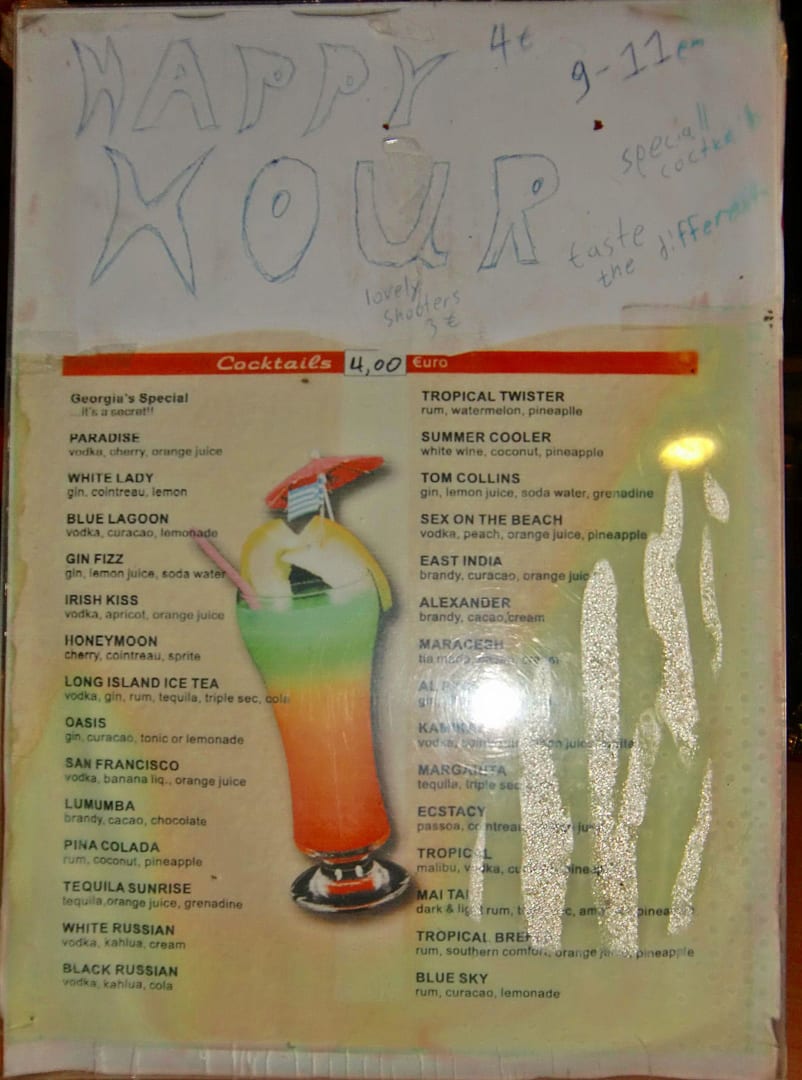 HAPPY 4€ 9-11pm
HOUR
speciall
cocktails
taste
the different
lovely
shooters
3 €
Cocktails 4,00 €uro
Georgia's Special
...it's a secret!!
PARADISE
vodka, cherry, orange juice
WHITE LADY
gin, cointreau, lemon
BLUE LAGOON
vodka, curacao, lemonade
GIN FIZZ
gin, lemon juice, soda water
IRISH KISS
vodka, apricot, orange juice
HONEYMOON
cherry, cointreau, sprite
LONG ISLAND ICE TEA
vodka, gin, rum, tequila, triple sec, cola
OASIS
gin, curacao, tonic or lemonade
SAN FRANCISCO
vodka, banana liq., orange juice
LUMUMBA
brandy, cacao, chocolate
PINA COLADA
rum, coconut, pineapple
TEQUILA SUNRISE
tequila,orange juice, grenadine
WHITE RUSSIAN
vodka, kahlua, cream
BLACK RUSSIAN
vodka, kahlua, cola
TROPICAL TWISTER
rum, watermelon, pineaplle
SUMMER COOLER
white wine, coconut, pineapple
TOM COLLINS
gin, lemon juice, soda water, grenadine
SEX ON THE BEACH
vodka, peach, orange juice, pineapple
EAST INDIA
brandy, curacao, orange juice
ALEXANDER
brandy, cacao,cream
MARACESH
tia maria,
KAMIKAZE
vodka,
MARGARITA
tequila, triple sec
ECSTACY
passoa, cointreau, juice
TROPICAL
malibu, vodka,
MAI TAI
dark & light rum, pineapple
TROPICAL BREEZE
rum, southern comfort, orange juice, pineapple
BLUE SKY
rum, curacao, lemonade